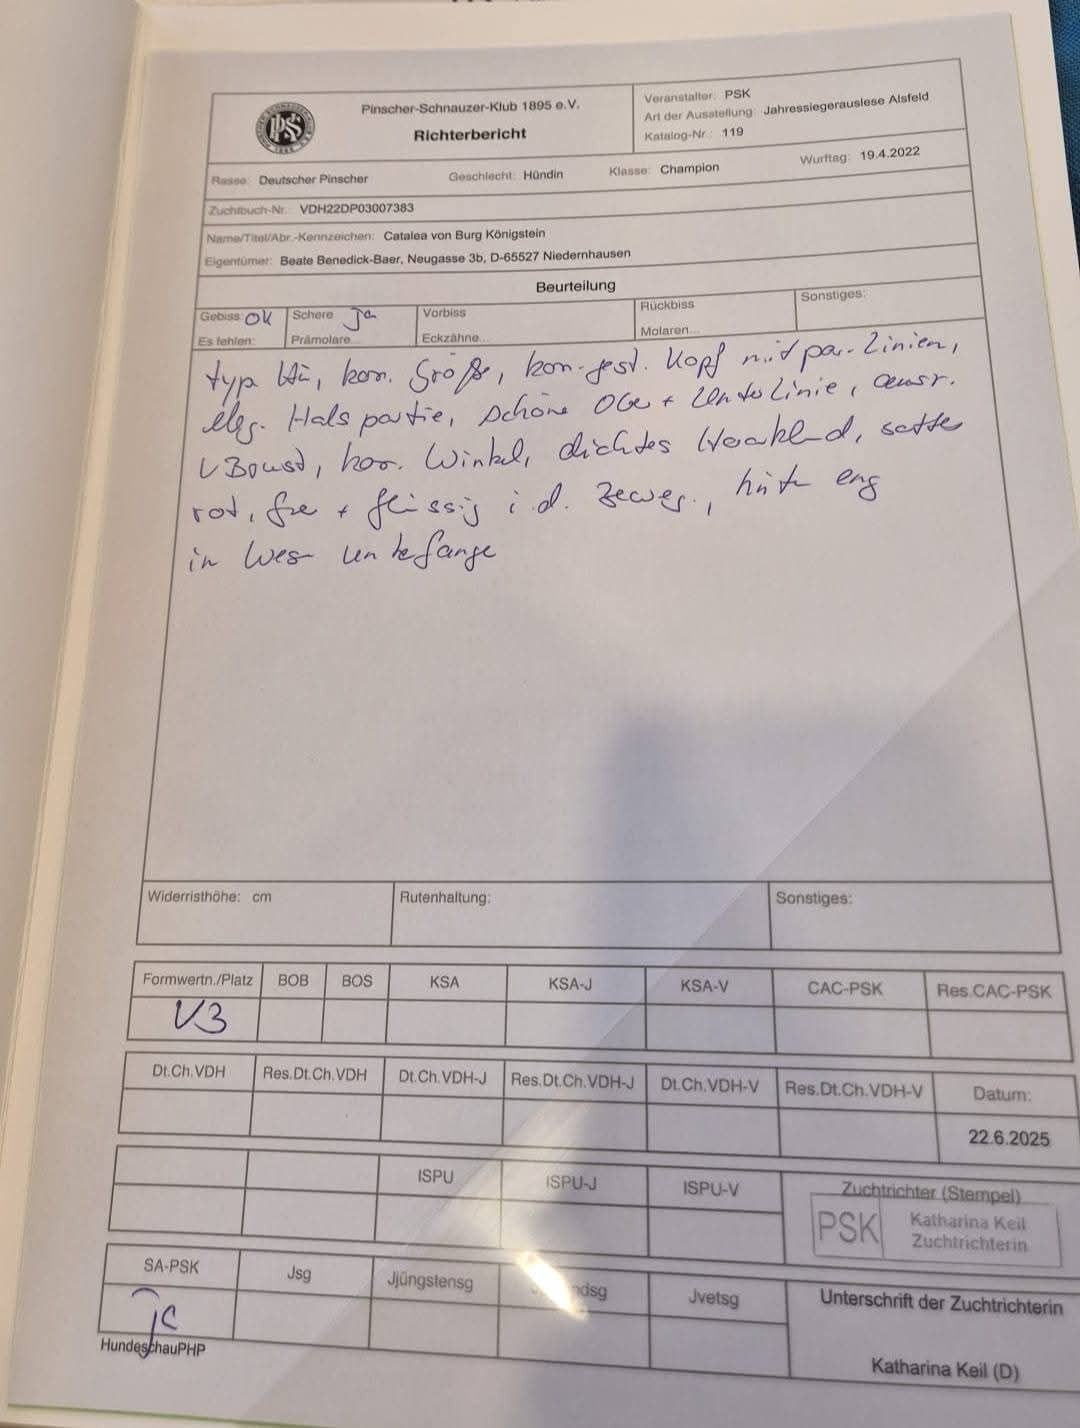 Pinscher-Schnauzer-Klub 1895 e.V.
Richterbericht
Veranstalter: PSK
Art der Ausstellung: Jahressiegerauslese Alsfeld
Katalog-Nr.: 119
Rasse: Deutscher Pinscher Geschlecht: Hündin Klasse: Champion Wurftag: 19.4.2022
Zuchtbuch-Nr.: VDH22DP03007383
Name/Titel/Abr.-Kennzeichen: Catalea von Burg Königstein
Eigentümer: Beate Benedick-Baer, Neugasse 3b, D-65527 Niedernhausen
Beurteilung
Gebiss: OK Schere ja Vorbiss Rückbiss Sonstiges:
Es fehlen: Prämolare... Eckzähne... Molaren...
typ. Hü, korr. Größe, korr. gest. Kopf mit par. Linien,
eleg. Halspartie, schöne Ober + Unterlinie, ausr.
VBrust, korr. Winkel, dichtes Haarkleid, sattes
rot, frei + flüssig i.d. Beweg., hinten eng
im Wesen unbefangen
Widerristhöhe: cm Rutenhaltung: Sonstiges:
Formwertn./Platz BOB BOS KSA KSA-J KSA-V CAC-PSK Res.CAC-PSK
V3
Dt.Ch.VDH Res.Dt.Ch.VDH Dt.Ch.VDH-J Res.Dt.Ch.VDH-J Dt.Ch.VDH-V Res.Dt.Ch.VDH-V Datum:
22.6.2025
ISPU ISPU-J ISPU-V Zuchtrichter (Stempel)
PSK Katharina Keil
Zuchtrichterin
SA-PSK Jsg Jjüngstensg Jvetsg Unterschrift der Zuchtrichterin
HundeschauPHP
Katharina Keil (D)